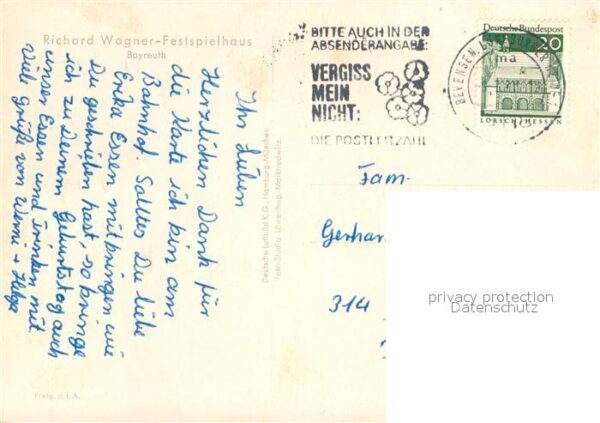 Richard Wagner-Festspielhaus
Bayreuth
Ihr Lieben
Herzlichen Dank für
die Karte ich bin am
Bahnhof. Solltes Du liebe
Erika Essen mitbringen wie
Du geschrieben hast, so bringe
ich zu Deinem Geburtstag auch
unser Essen und Trinken mit
Viel Grüße von Werni + Helga
Frklg. d. I. A.
Deutsche Luftbild K.G., Hamburg-München
Foto-Studio Löwenhag, Marktredwitz
BITTE AUCH IN DER
ABSENDERANGABE:
VERGISS
MEIN
NICHT:
DIE POSTLEITZAHL
BEVENSEN
ma
Deutsche Bundespost
20
LORSCH/HESSEN
Fam.
Gerhar
314
privacy protection
Datenschutz